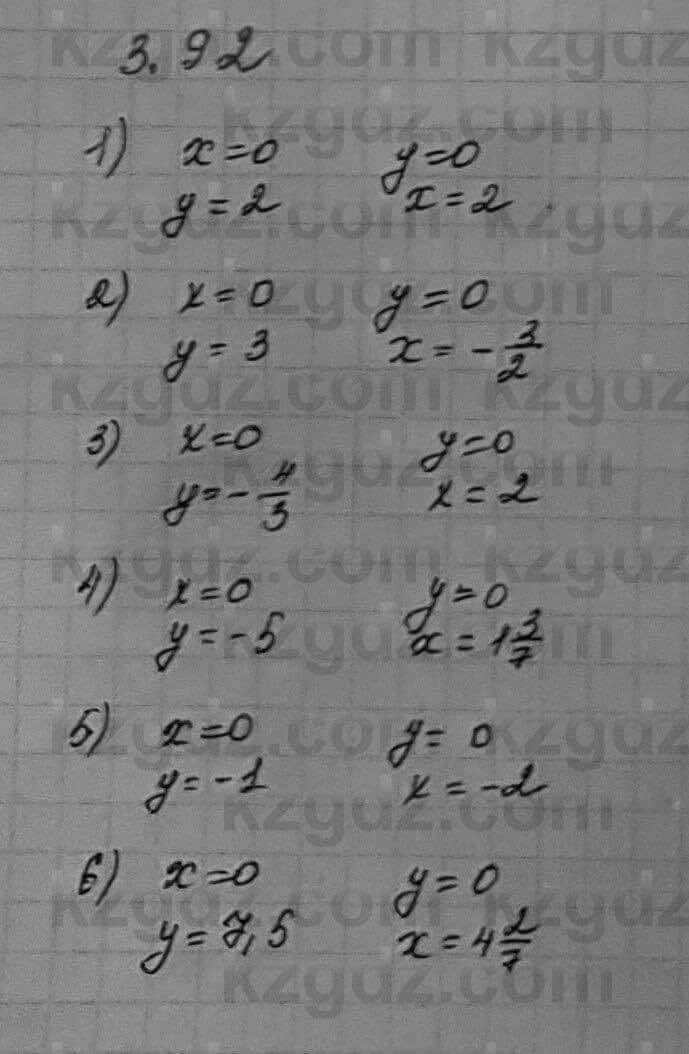 3.92
1) x=0 y=0
y=2 x=2
2) x=0 y=0
y=3 x=-3/2
3) x=0 y=0
y=-4/3 x=2
4) x=0 y=0
y=-5 x=1 3/7
5) x=0 y=0
y=-1 x=-2
6) x=0 y=0
y=7,5 x=4 2/7
kzguz.com